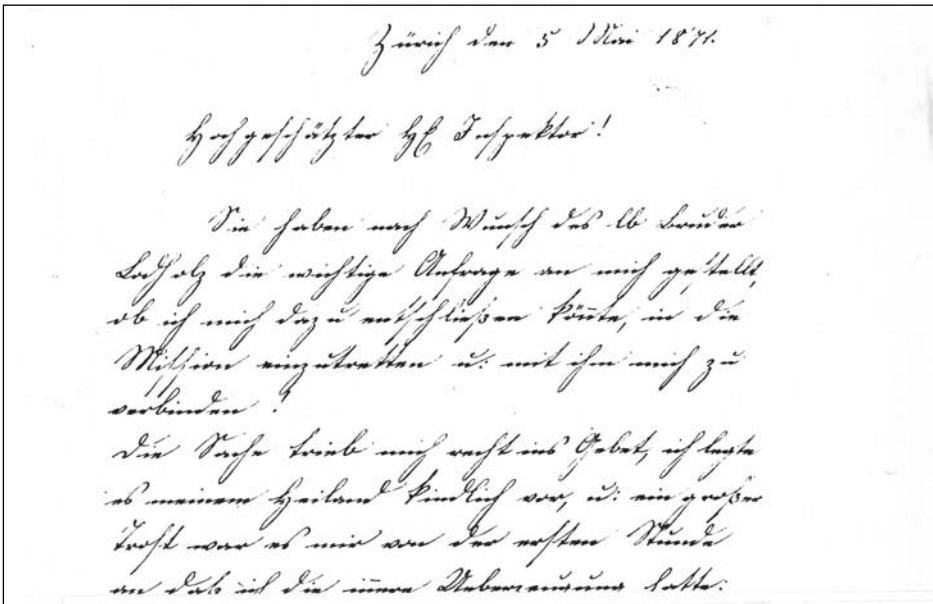 Zürich den 5 Mai 1871.
Hochgeschätzter HE Inspektor!
Sie haben nach Wunsch des lb Bruder
Lodholz die wichtige Anfrage an mich gestellt,
ob ich mich dazu entschließen könnte, in die
Mission einzutretten u: mit ihm mich zu
verbinden?
Die Sache trieb mich recht ins Gebet, ich legte
es meinem Heiland kindlich vor, u: ein großer
Trost war es mir von der ersten Stunde
an daß ich die innere Ueberzeugung hatte: